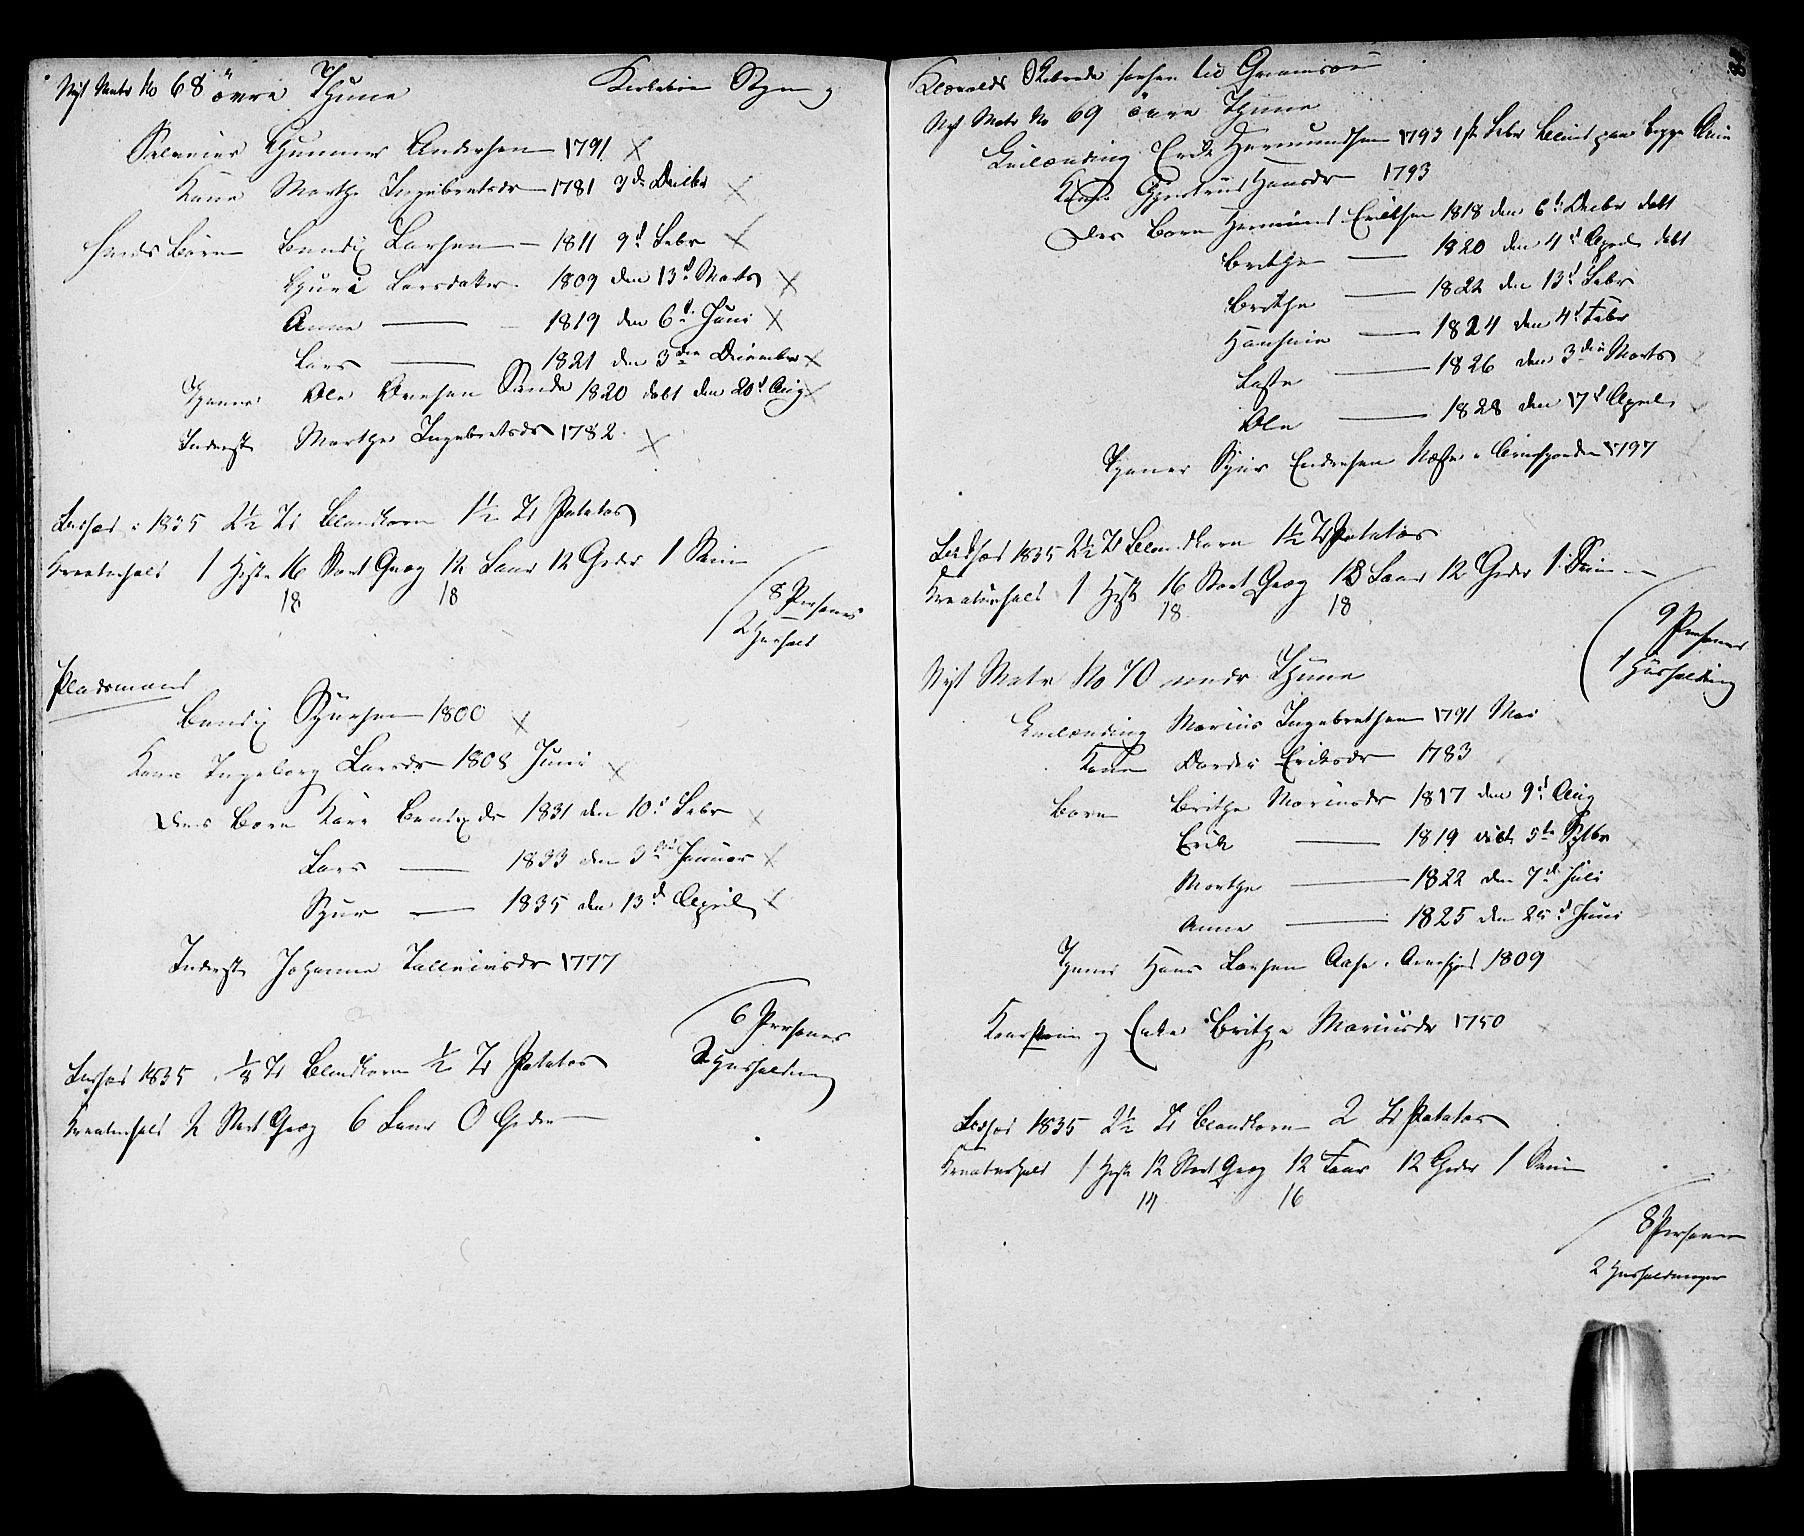 Nyt Matr No 68 övre Thune Kirkebøe Sogn og
Gunner Andersen 1791 X
Kone Marthe Ingebretsdr 1781 X
hendes Børn Bendix Larsen 1811 9d Febr X
Guri Larsdatter 1809 den 13d Marts X
Anne — 1819 den 6d Juni X
Lars — 1821 den 3die December X
Tyener Ole Sande 1820 døbt den 20d Aug X
Inderst Marthe Ingebretsdr 1782 X
Udsæd i 1835 2½ Td Blandkorn 1½ Td Potatos
Kreaturhold 1 Hest 16 Stort Qvæg 12 Faar 12 Geder 1 Sviin
18 18
8 Personer
2 Huushold
Pladsmand
Bendix Sjursen 1800 X
Kone Ingeborg Larsdr 1808 Juni X
Deres Børn Kari Bendixdr 1831 den 10d Febr X
Lars — 1833 den 3die Januar X
Sjur — 1835 den 13d April X
Inderst Johanne Talleivsdr 1777
6 Personer
2 Huusholdning
Udsæd 1835 ⅛ Td Blandkorn ½ Td Potatos
Kreaturhold 2 Stort Qvæg 6 Faar 0 Geder
Nyt Matr No 69 övre Thune
Erik Hermundsen 1793 1ste Febr blind paa begge
Kone Gjertrud Hansdr 1793
Deres Børn Hermund Eriksen 1818 den 6d Decbr døbt
Brithe — 1820 den 4d April døbt
Brithe — 1822 den 13d Febr
— 1824 den 4d Febr
— 1826 den 3die Marts
Ole — 1828 den 17d April
Tyener Sjur Endresen 1797
Udsæd 1835 2½ Td Blandkorn 1½ Td Potatos
Kreaturhold 1 Hest 16 Stort Qvæg 12 Faar 12 Geder 1 Sviin
18 18
9 Personer
1 Huusholdning
Nyt Matr No 70 nedr Thune
Marius Ingebrethsen 1791 Mai
Kone Dordei Eriksdr 1783
Børn Brithe Mariusdr 1817 den 9d Aug
Erik — 1819 døbt 5te Septbr
Marthe — 1822 den 7d Juli
Anne — 1825 den 25d Juni
Tyener Hans Larsen 1809
og Enke Brithe Mariusdr 1750
Udsæd 1835 2½ Td Blandkorn 2 Td Potatos
Kreaturhold 1 Hest 12 Stort Qvæg 12 Faar 12 Geder 1 Sviin
14 16
8 Personer
2 Huusholdninger